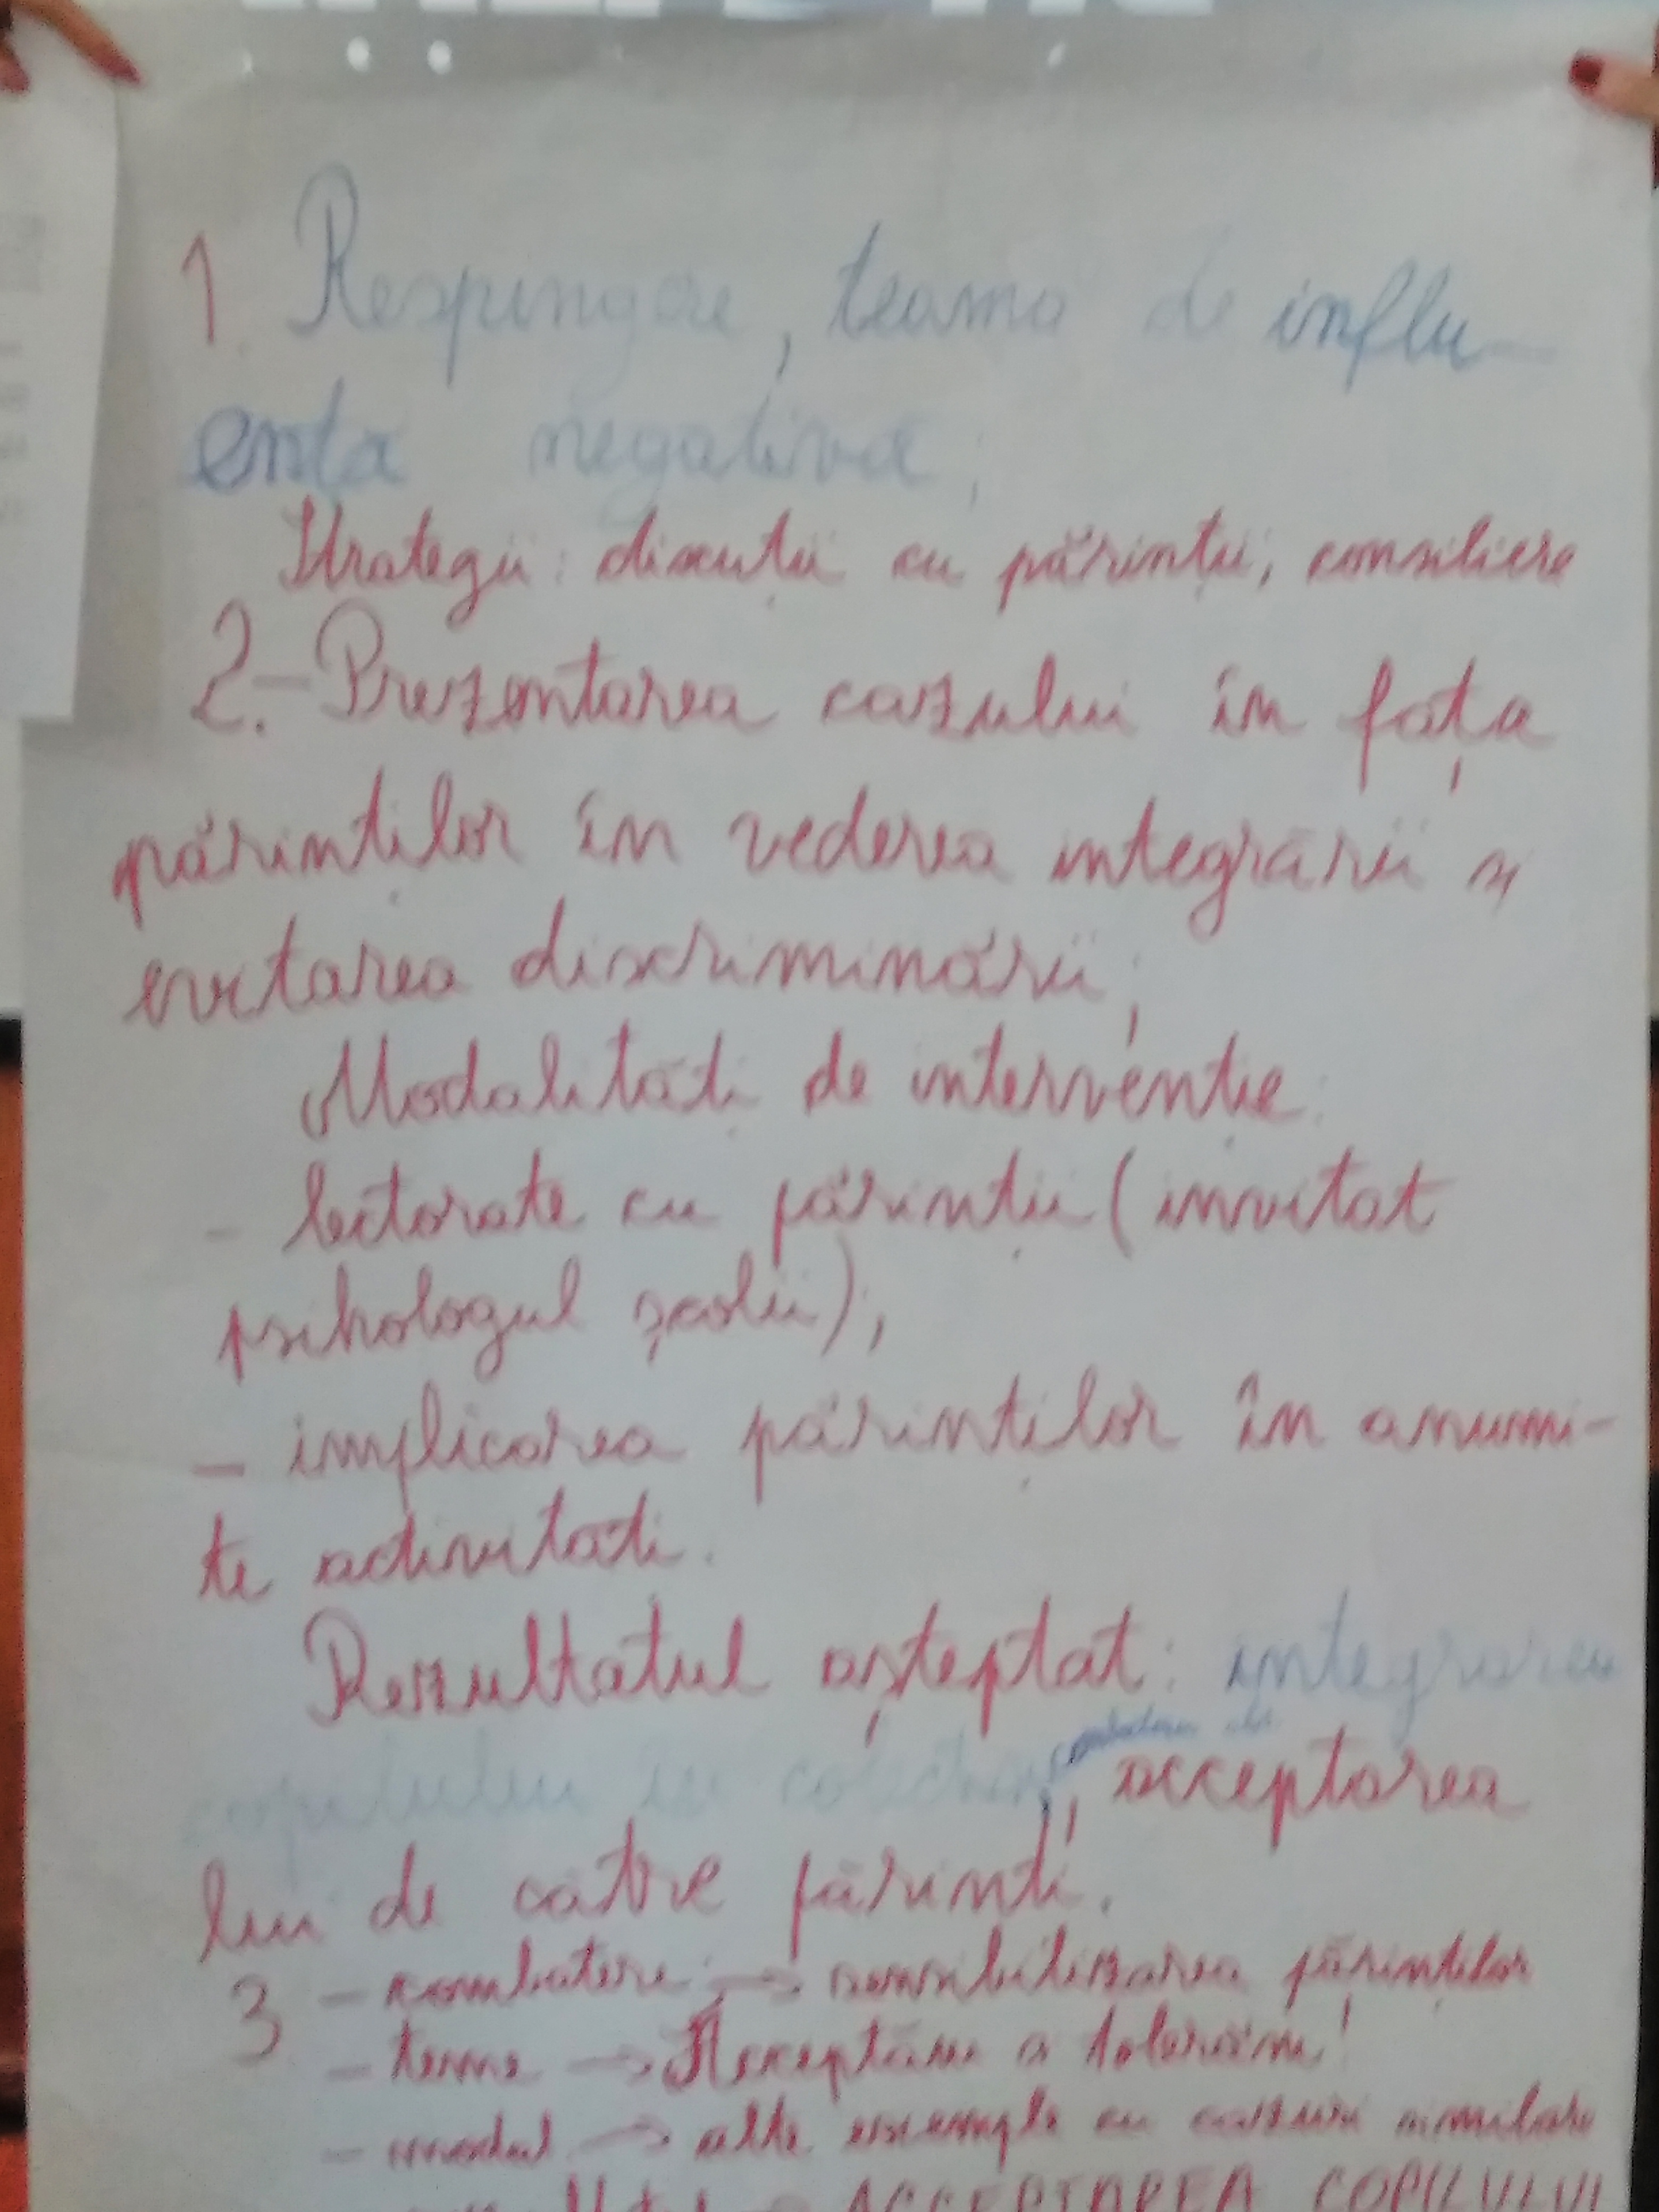 1. Respingere, teama de influ-
enta negativă;
Strategii: discuții cu părinții, consiliere
2.- Prezentarea cazului în fața
părinților în vederea integrării și
evitarea discriminării;
Modalități de intervenție:
- lectorate cu părinții (invitat
psihologul școlii);
- implicarea părinților în anumi-
te activități.
Rezultatul așteptat: integrarea
copilului in colectiv, acceptarea
lui de către părinți.
3 - combatere: → sensibilizarea părinților
- teme → Acceptăm a tolerăm!
- modul → alte exemple cu cazuri similare
→ ACCEPTAREA COPILULUI